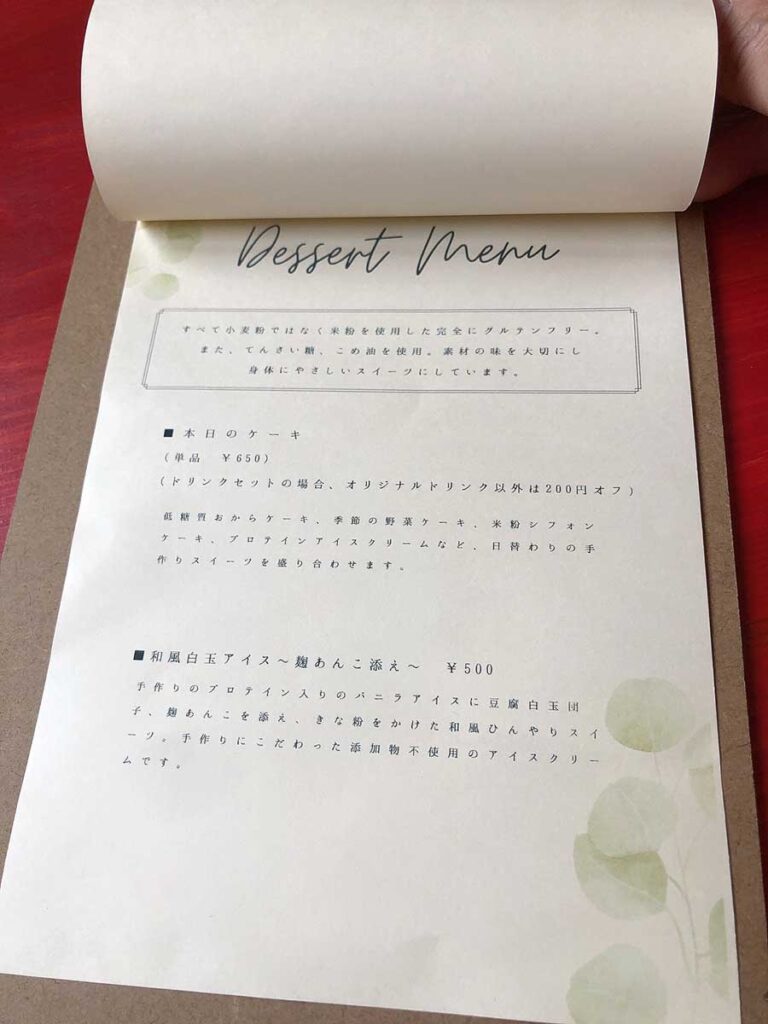 Dessert Menu
すべて小麦粉ではなく米粉を使用した完全にグルテンフリー。
また、てんさい糖、こめ油を使用。素材の味を大切にし
身体にやさしいスイーツにしています。
■本日のケーキ
(単品 ¥650)
(ドリンクセットの場合、オリジナルドリンク以外は200円オフ)
低糖質おからケーキ、季節の野菜ケーキ、米粉シフォン
ケーキ、プロテインアイスクリームなど、日替わりの手
作りスイーツを盛り合わせます。
■和風白玉アイス〜麹あんこ添え〜 ¥500
手作りのプロテイン入りのバニラアイスに豆腐白玉団
子、麹あんこを添え、きな粉をかけた和風ひんやりスイ
ーツ。手作りにこだわった添加物不使用のアイスクリー
ムです。